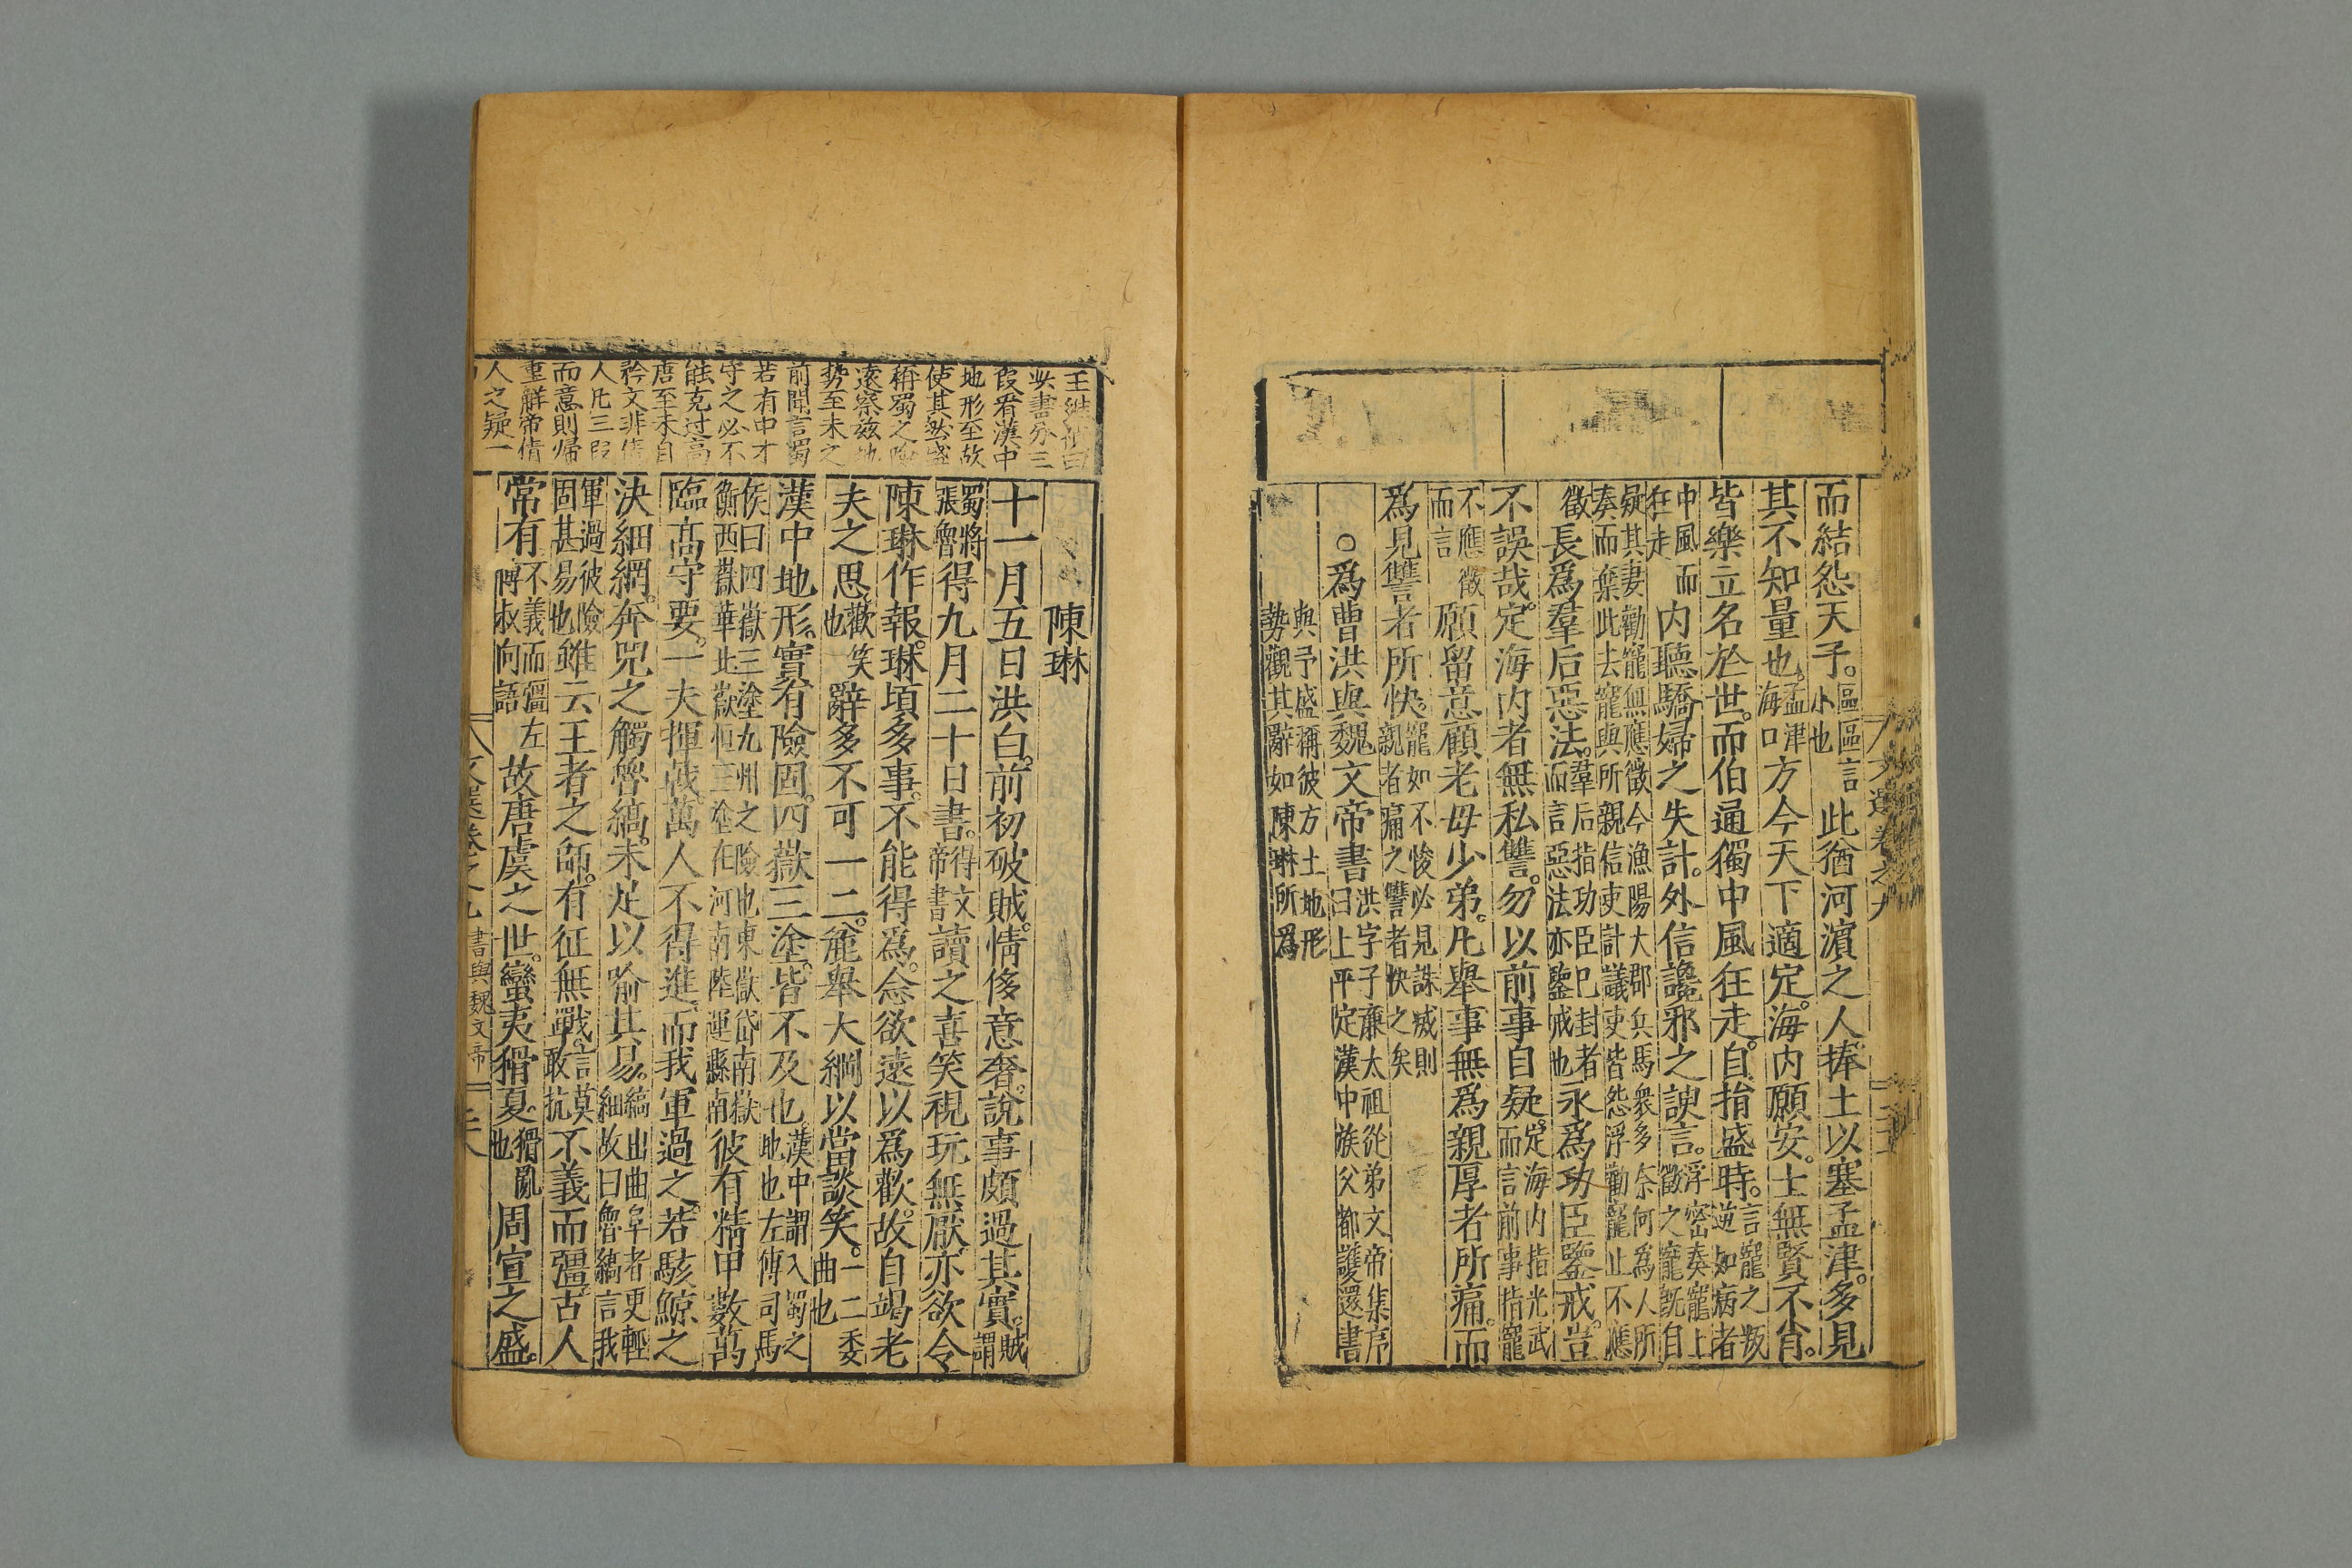 而結怨天子。區區言小也此猶河濵之人。捧土以塞孟津。多見
其不知量也。孟津海口方今天下適定。海内願安。士無賢不肖。
皆樂立名於世。而伯通獨中風狂走。自捐盛時。言寵之叛逆如病者
中風而狂走内聽驕婦之失計。外信讒邪之諛言。浮密奏寵上徵之寵旣自
疑其妻勸寵無應徵今漁陽大郡兵馬衆多奈何爲人所
奏而棄此去寵與所親信吏計議吏皆怨浮勸寵止不應
徵長爲羣后惡法。羣后指功臣巳封者而言惡法亦鑒戒也永爲功臣鑒戒。豈
不誤哉。定海内者無私讐。勿以前事自疑。定海内指光武而言前事指寵
不應徵而言願留意顧老毋少弟。凡舉事無爲親厚者所痛。而
爲見讐者所快。寵如不悛必見誅滅則親者痛之讐者快之矣
○爲曹洪與魏文帝書洪字子廉太祖從弟文帝集序曰上平定漢中族父都護還書
與予盛稱彼方土地形
勢觀其辭如陳琳所爲
陳琳
十一月五日洪白。前初破賊。情侈意奢。說事頗過其實。賊謂
蜀將張魯得九月二十日書。得文帝書讀之喜笑視玩無厭。亦欲令
陳琳作報。琳頃多事。不能得爲。念欲遠以爲歡。故自竭老
夫之思。歡笑也辭多不可一二。粗舉大綱以當談笑。一二委曲也
漢中地形。實有險固。四嶽三塗。皆不及也。漢中謂入蜀之地也左傳司馬
侯曰四嶽三塗九州之險也東嶽岱南嶽
衡西嶽華北嶽恒三塗在河南陸運縣南彼有精甲數萬
臨高守要。一夫揮戟。萬人不得進。而我軍過之。若駭鯨之
決細網。奔兕之觸魯縞。未足以喻其易。縞出曲阜者更輕細故曰魯縞言我
軍過彼險固甚易也雖云王者之師。有征無戰。言莫敢抗不義而彊。古人
常有不義而彊左傳叔向語故唐虞之世。蠻夷猾夏。猾亂也周宣之盛。
書與魏文帝